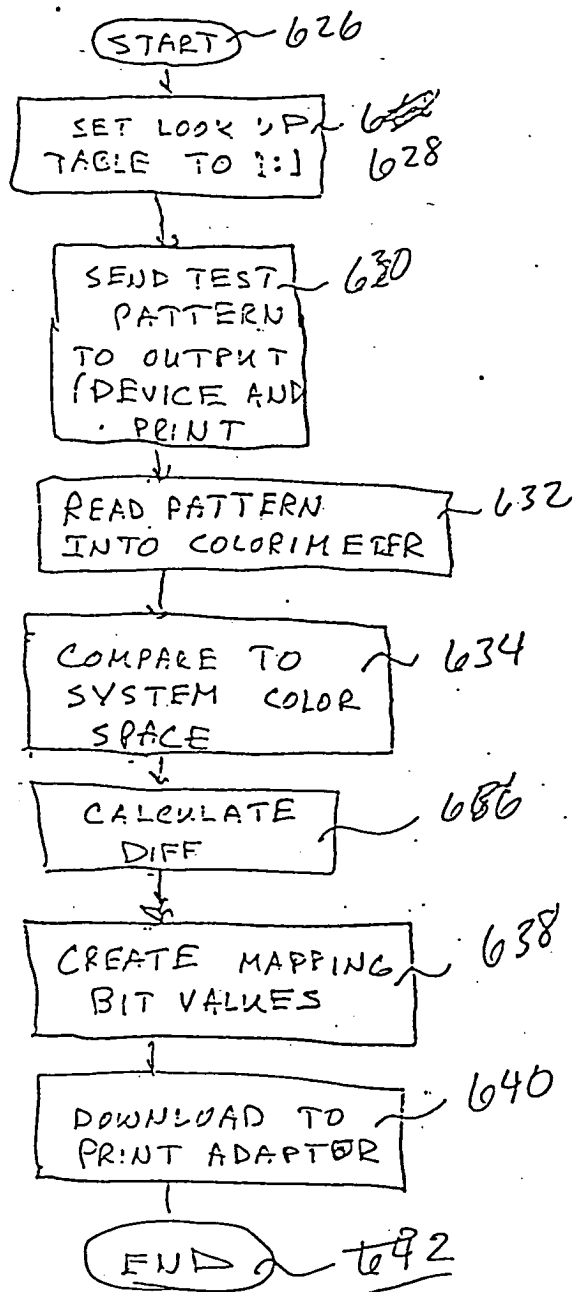 START 626
SET LOOK UP
TABLE TO 1:1 628
SEND TEST 630
PATTERN
TO OUTPUT
DEVICE AND
PRINT
READ PATTERN 632
INTO COLORIMETER
COMPARE TO 634
SYSTEM COLOR
SPACE
CALCULATE 636
DIFF
CREATE MAPPING 638
BIT VALUES
DOWNLOAD TO 640
PRINT ADAPTOR
END 642